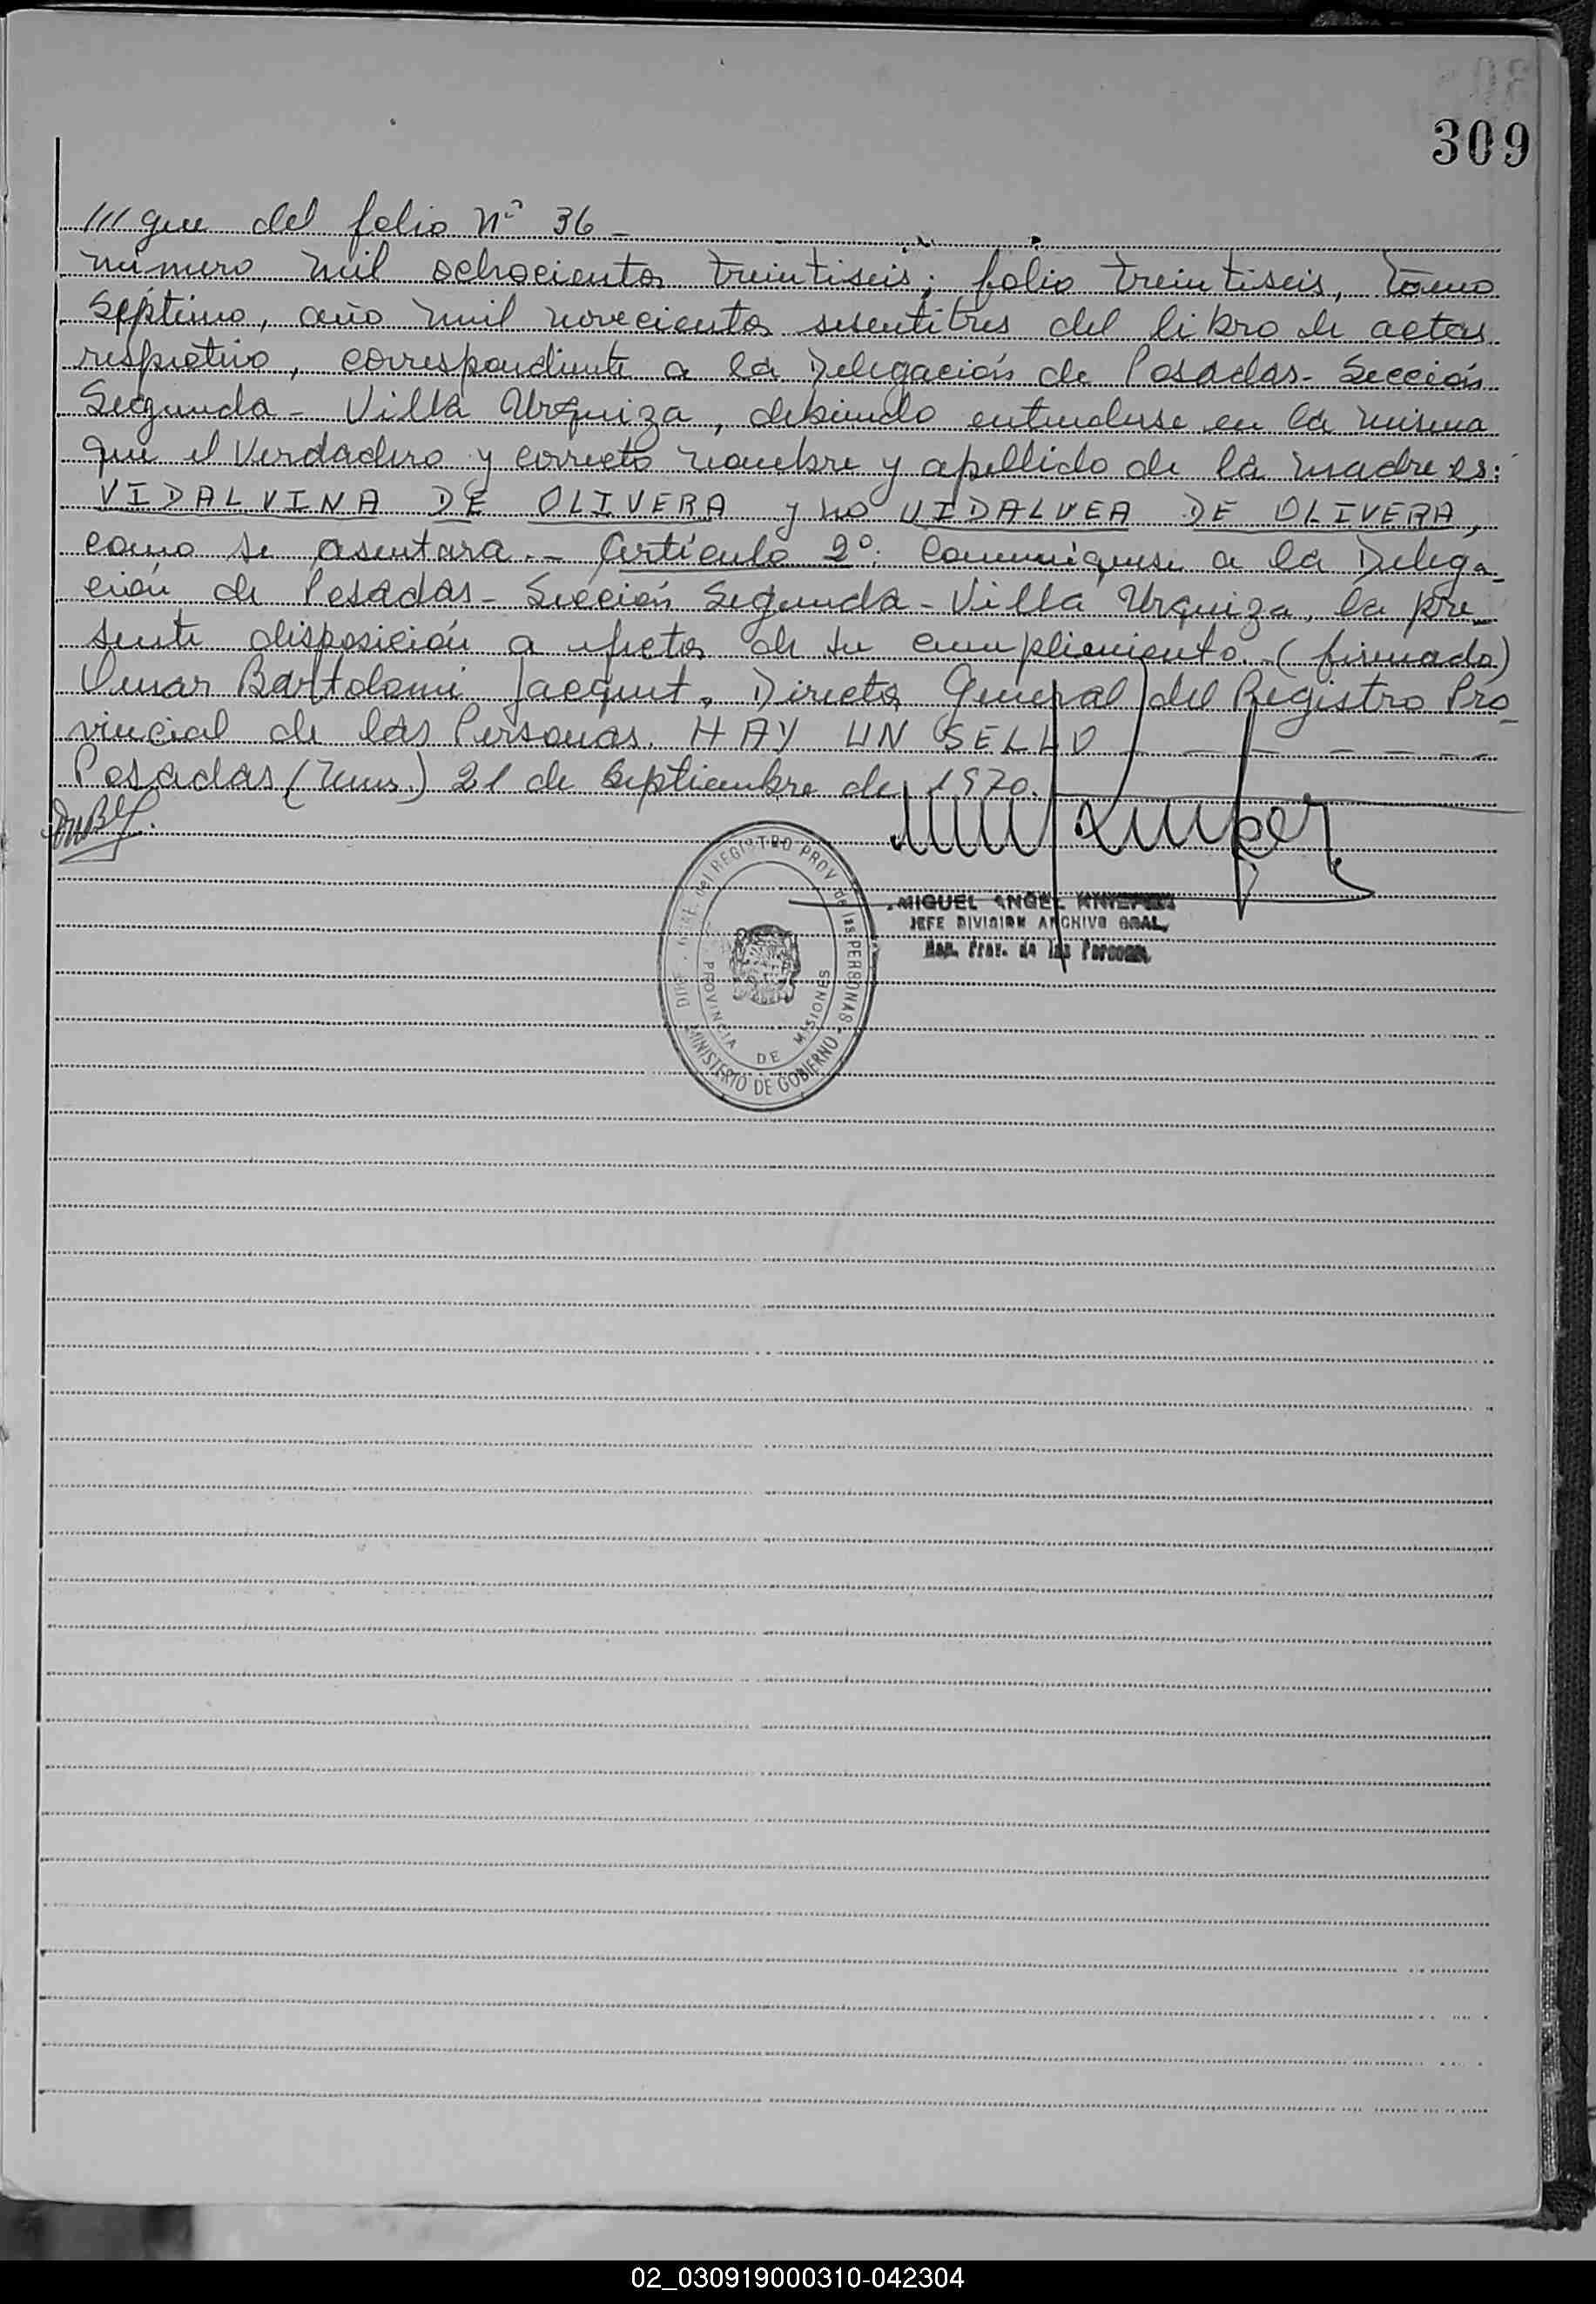 309
/// gue del folio Nº 36 -
número mil ochocientos treintiseis; folio treintiseis, tomo
Séptimo, año mil novecientos sesentitres del libro de actas
respectivo, correspondiente a la Delegación de Posadas - Sección
Segunda - Villa Urquiza, debiendo entenderse en la misma
que el verdadero y correcto nombre y apellido de la madre es:
VIDALVINA DE OLIVERA y no VIDALVEA DE OLIVERA,
como se asentara. - Artículo 2º: Comuníquese a la Delega-
ción de Posadas - Sección Segunda - Villa Urquiza, la pre-
sente disposición a efectos de su cumplimiento. (firmado)
Omar Bartolomé Jacquet. Director General del Registro Pro-
vincial de las Personas. HAY UN SELLO - - - - - -
Posadas (Mnes.) 21 de Septiembre de 1970.
MIGUEL ANGEL
JEFE DIVISION ARCHIVO GRAL.
Reg. Prov. de las Personas
del REGISTRO PROV. de las PERSONAS
MINISTERIO DE GOBIERNO
PROVINCIA DE MISIONES
02_030919000310-042304